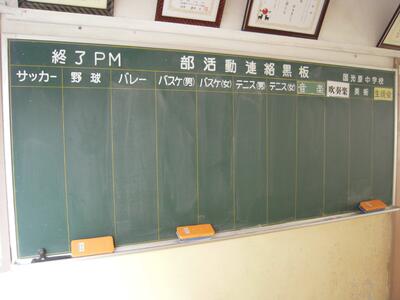 終了PM 部活動連絡黒板 国光原中学校
サッカー 野球 バレー バスケ(男) バスケ(女) テニス(男) テニス(女) 音楽 吹奏楽 美術 生徒会